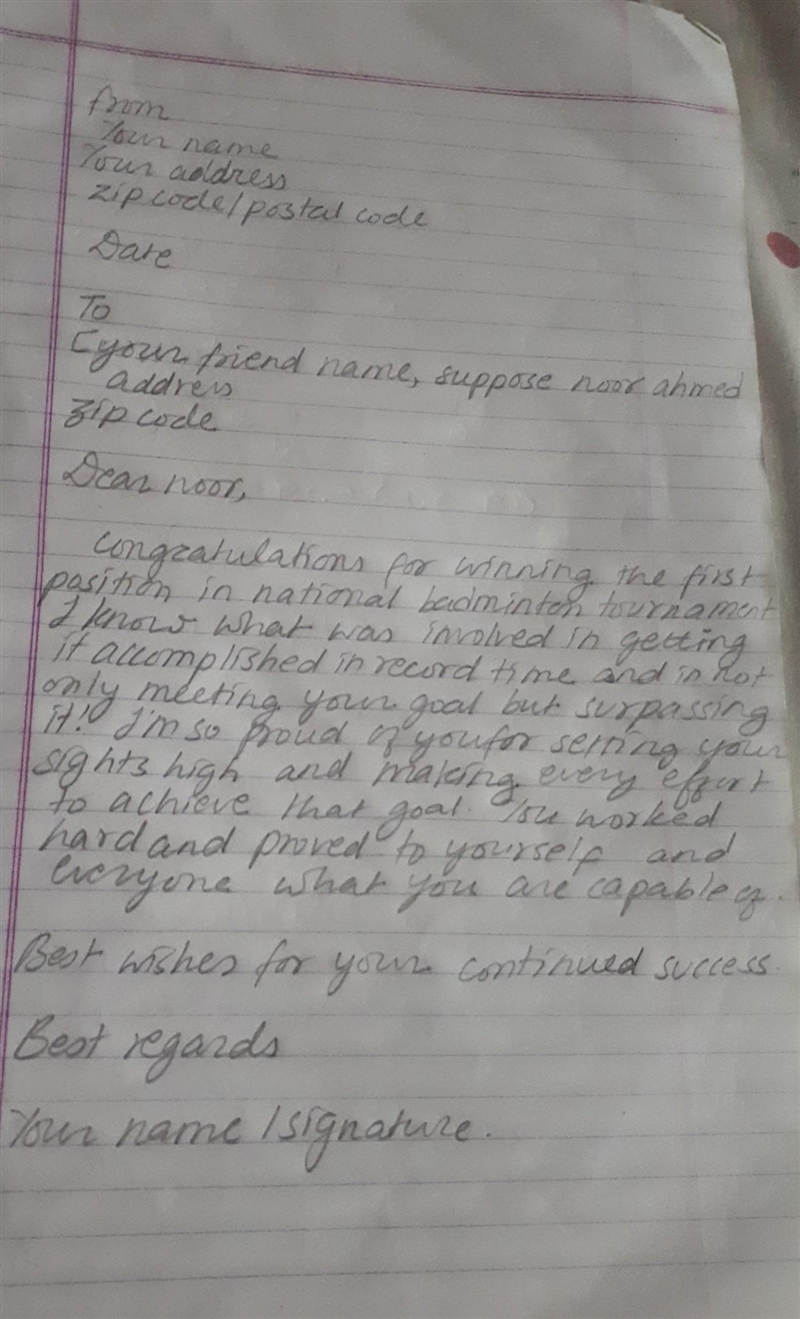 from
Your name
Your address
zip code/postal code
Date
To
[your friend name, suppose noor ahmed
address
zip code
Dear noor,
congratulations for winning the first
position in national badminton tournament
I know what was involved in getting
it accomplished in record time and in not
only meeting your goal but surpassing
it! I'm so proud of you for setting your
sights high and making every effort
to achieve that goal. You worked
hard and proved to yourself and
everyone what you are capable of.
Best wishes for your continued success
Best regards
Your name /signature.